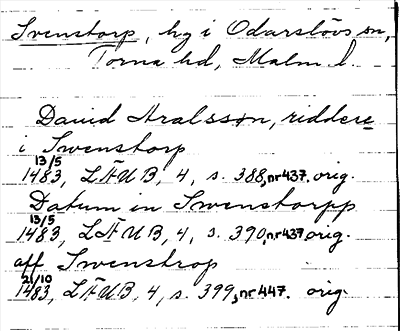 Svenstorp, hg i Odarslövs sn,
Torna hd, Malm l.
David Aralsson, riddere
i Swenstorp
13/5
1483, LÄUB, 4, s. 388, nr 437. orig.
Datum in Swenstorpp
13/5
1483, LÄUB, 4, s. 390, nr 437 orig.
aff Swenstrop
21/10
1483, LÄUB, 4, s. 399, nr 447. orig.